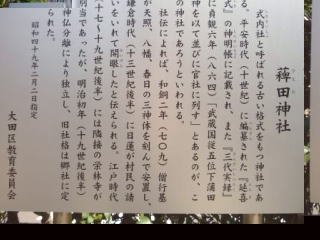 薭田神社
式内社と呼ばれる古い格式をもつ神社であ
る。平安時代(十世紀)に編纂された『延喜
式』の神明帳に記載され、また『三代実録』
に貞観六年(八六四)「武蔵国従五位下蒲田
神を以て並びに官社に列す」とあるのが、こ
の神社であろうといわれる。
社伝によれば、和銅二年(七〇九)僧行基
が天照、八幡、春日の三神体を刻んで安置し、
鎌倉時代(十三世紀後半)に日蓮が村民の請
いをいれて開眼したと伝えられる。江戸時代
(十七~十九世紀後半)には隣接の栄林寺が
別当であったが、明治初年(十九世紀後半)
神仏分離により独立し、旧社格は郷社に定
られた。
昭和四十九年二月二日指定
大田区教育委員会